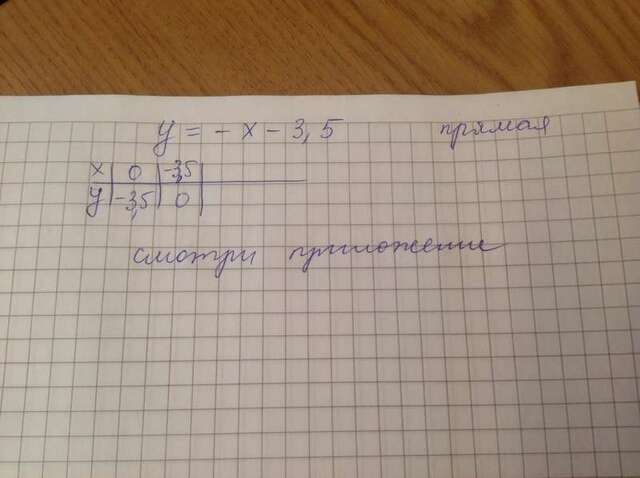 y = - x - 3,5 прямая
x 0 -3,5
y -3,5 0
смотри приложение